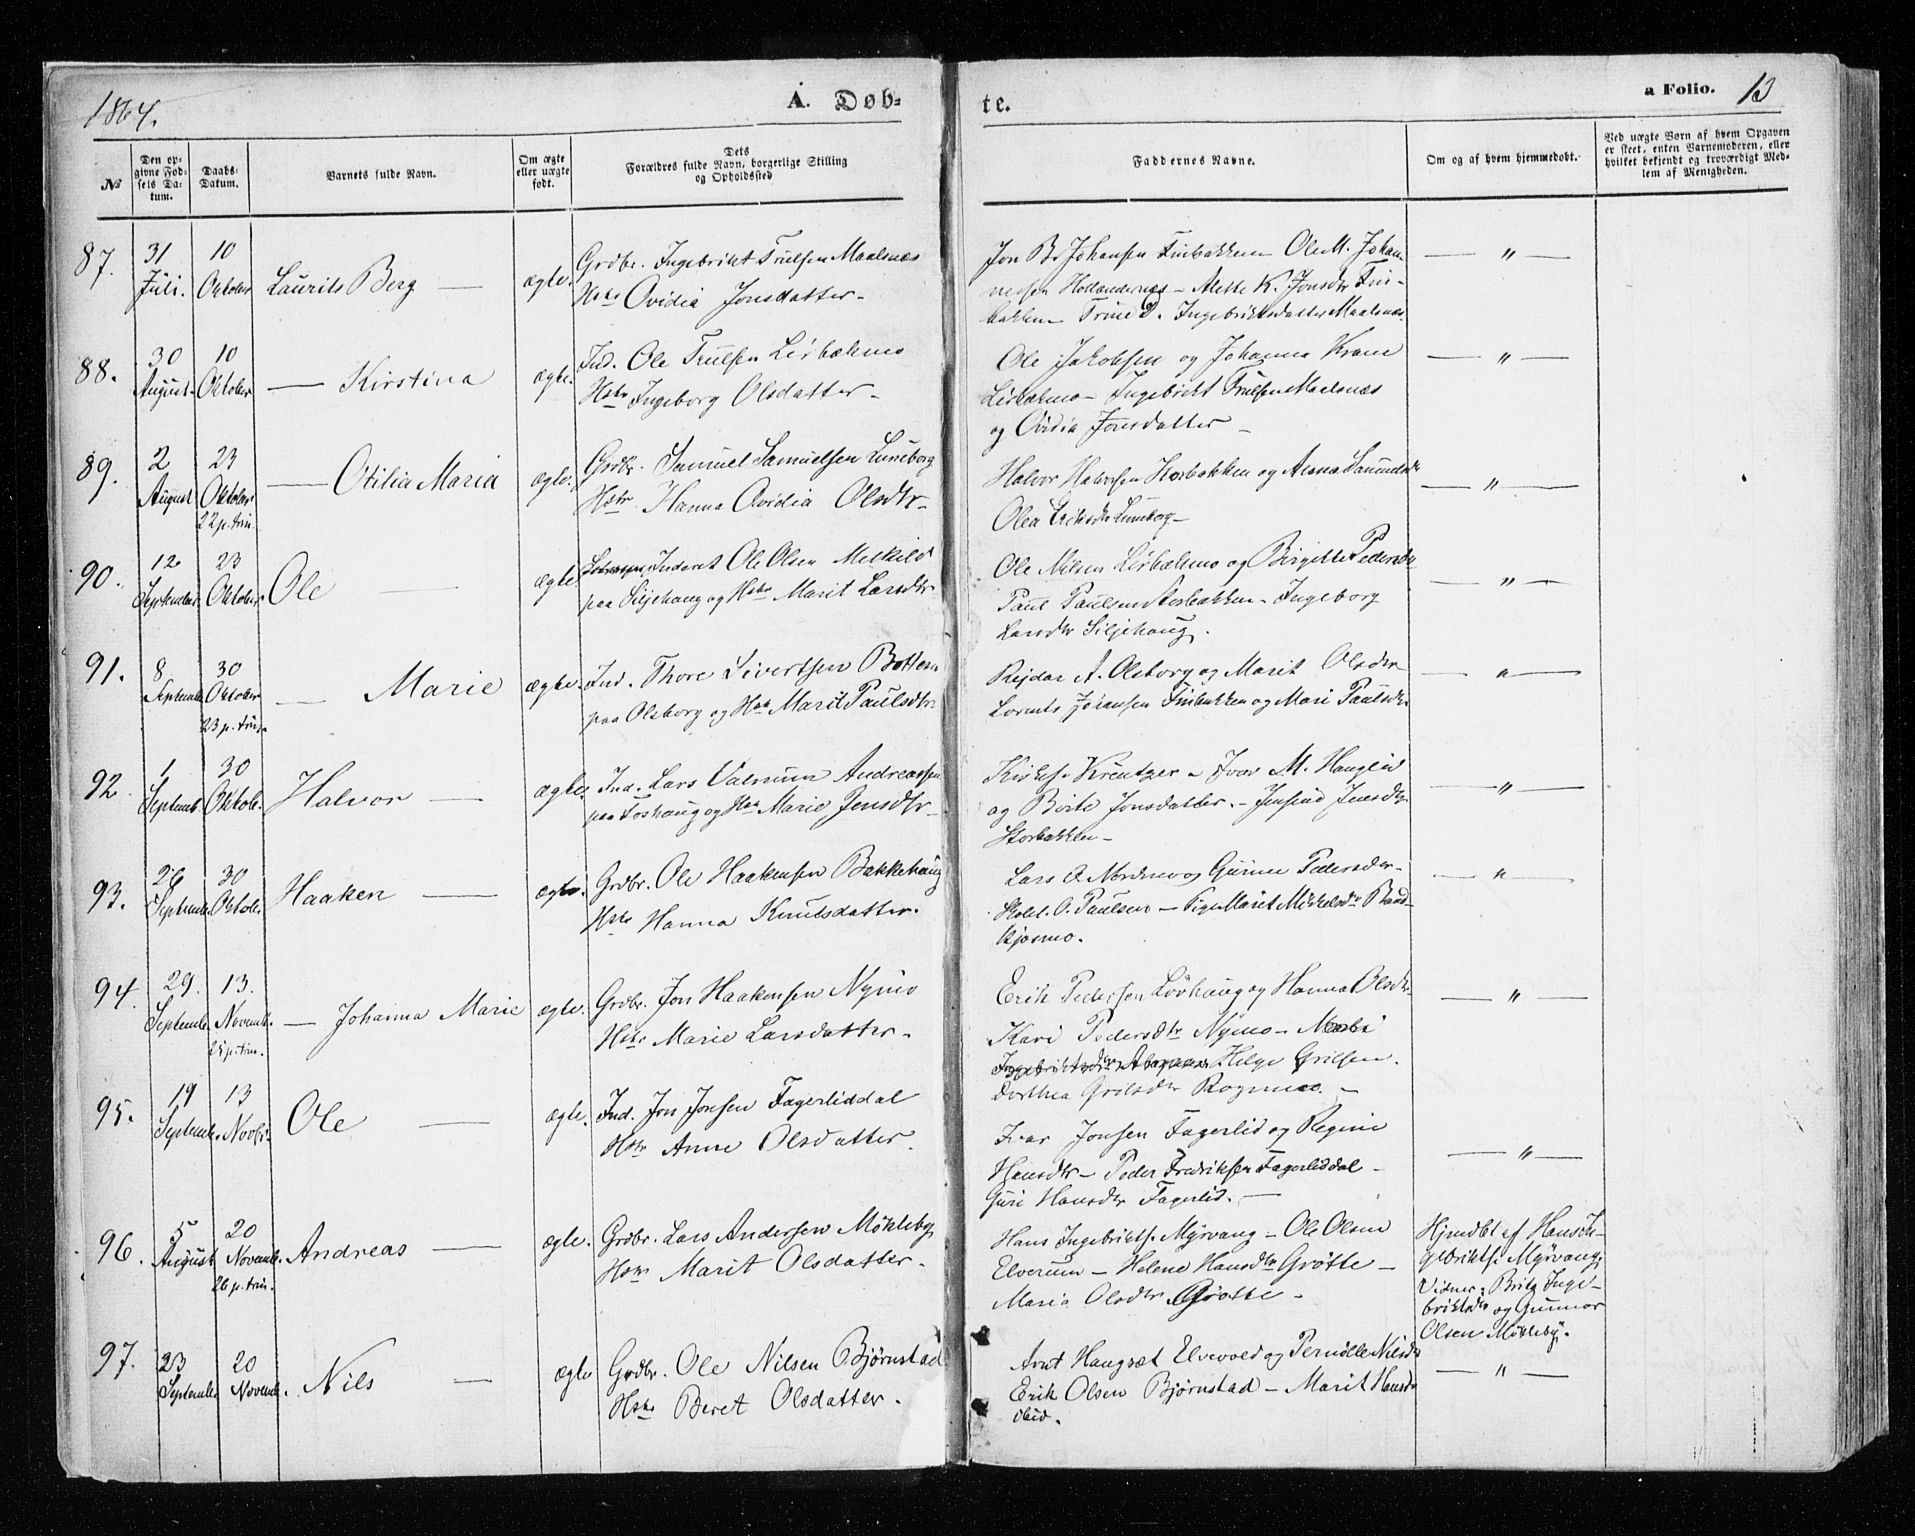 1864.
A. Døb-
te.
a Folio. 13
№
Den op-
givne Fød-
sels Da-
tum.
Daabs-
Datum.
Barnets fulde Navn.
Om ægte
eller uægte
født.
Dets
Forældres fulde Navn, borgerlige Stilling
og Opholdssted
Faddernes Navne.
Om og af hvem hjemmedøbt.
Ved uægte Børn af hvem Opgaven
er skeet, enten Barnemoderen, eller
hvilket bekjendt og troværdigt Med-
lem af Menigheden.
87.
31
Juli.
10
Oktober
Laurits Berg —
ægte.
Grdbr. Ingebrikt Trulsen Maalsnæs
Hstr Ovidia Jonsdatter-
Jon Johansen Finbakken Ole M. Johan-
nessen Hollendernæs - Alette K. Jonsdtr Fin-
bakken Trine D. Ingebriktsdatter Maalsnæs.
— " —
88.
30
August
10
Oktober
— Kirstina
ægte.
Ind. Ole Trulsen Lirbælmo
Hstr Ingeborg Olsdatter -
Ole Jakobsen og Johanna Krane
Lirbælmo - Ingebrikt Trulsen Maalsnæs
og Ovidia Jonsdatter -
— " —
89.
2
August
23
Oktober
22 p. trin.
— Otilia Maria
ægte.
Grdbr. Samuel Samuelsen Luneborg
Hstr Hanna Ovidia Olsdtr-
Halvor Halvorsen Storbakken og
Olea Eriksdtr Luneborg-
— " —
90.
12
September
23
Oktober
Ole —
ægte
Inderst Ole Olsen Melkild
paa Siljehaug og Hstr Marit Larsdtr
Ole Nilsen Lirbælmo og Birgitte Pedersdtr
Paul Paulsen Storbakken - Ingeborg
Larsdtr Siljehaug.
— " —
91.
8
Septembr
30
Oktober
23 p. trin.
— Marie
ægte.
Ind. Thore Sivertsen Botten
paa Olsborg og Hstr Marit Paulsdtr.
Rejdar A. Olsborg og Marit Olsdtr
Lorents Johansen Finbakken og Mari Paulsdtr
— " —
92
1
Septemb.
30
Oktob.
Halvor —
ægte.
Ind. Lars Andreassen
paa Foshaug og Hstr Marie Jensdtr-
Kreutzer - Ivar M. Hauglid
og Borte Jonsdatter. - Jensdtr
Storbakken-
— " —
93.
26
Septembr
30
Oktob.
Haaken —
ægte.
Grdbr. Ole Haakensen Bakkehaug
Hstr Hanna Knutsdatter.
Lars O. Nordmo og Gurine Pedersdtr-
Skolel. O. Paulsen - Pige Marit Mikkelsdtr Rund-
kjosmo.
— " —
94.
29.
Septemb.
13.
Novemb.
25 p. trin.
— Johanna Marie
ægte.
Grdbr. Jon Haakensen Nymo
Hstr Marie Larsdatter -
Erik Pedersen Løvhaug og Hanna Olsdtr-
Kari Pedersdtr Nymo -
Helge Grilsen.
Dorthea Grilsdtr Rognmo. -
— " —
95.
19
Septemb.
13
Novbr.
Ole —
ægte.
Ind. Jon Jonsen Fagerliddal
Hstr Anne Olsdatter.
Ivar Jonsen Fagerlid og Regine
Hansdtr - Peder Fredriksen Fagerliddal -
Guri Hansdtr Fagerlid. -
— " —
96.
5
August
20
Novemb.
26 p. trin.
Andreas —
ægte.
Grdbr. Lars Andersen Møkleby,
Hstr Marit Olsdatter -
Hans Ingebriktsen Myrvang - Ole Olsen
Elverum - Helene Hansdtr Grøtte -
Maria Olsdtr Grøtte -
Hjemdbt af Hans In-
gebriktsn Myrvang;
Vidner: Brita Inge-
briktsdtr og Gunnar
Olsen Møkleby.
97.
23
Septembr
20
Novemb.
Nils —
ægte
Grdbr. Ole Nilsen Bjørnstad
Hstr Beret Olsdatter.
Arnt Haugsæt Elvevold og Pernille Nilsdtr
Erik Olsen Bjørnstad - Marit Hansdtr
ibid.
— " —